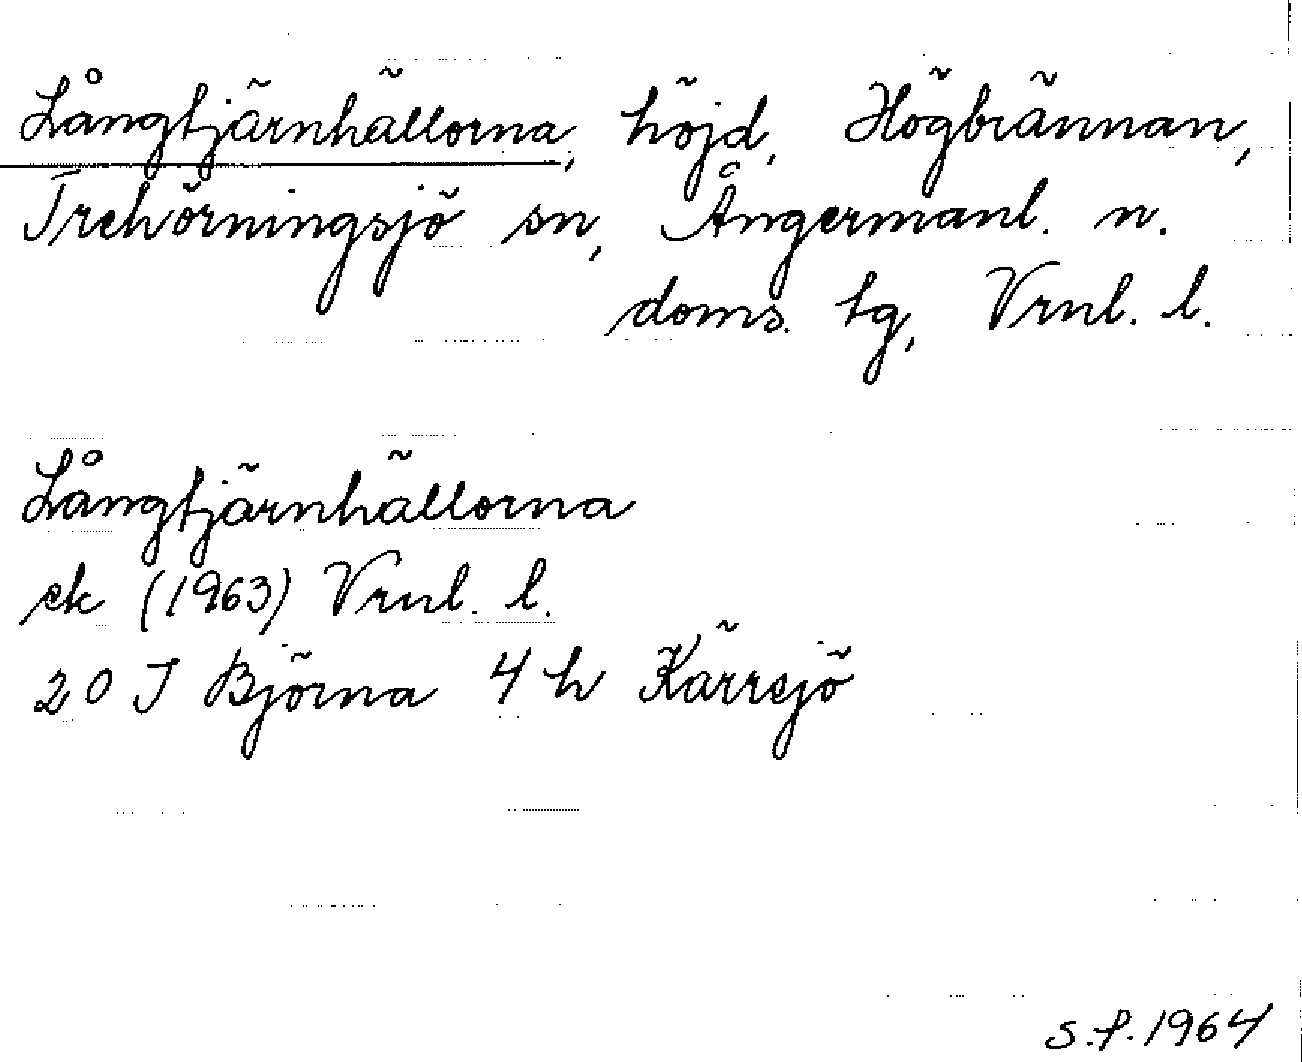 Långtjärnhällorna, höjd, Högbrännan,
Trehörningsjö sn, Ångermanl. n.
doms. tg, Vrnl. l.
Långtjärnhällorna
ek (1963) Vrnl. l.
20 J Björna 4 h Kärrsjö
S.f. 1964